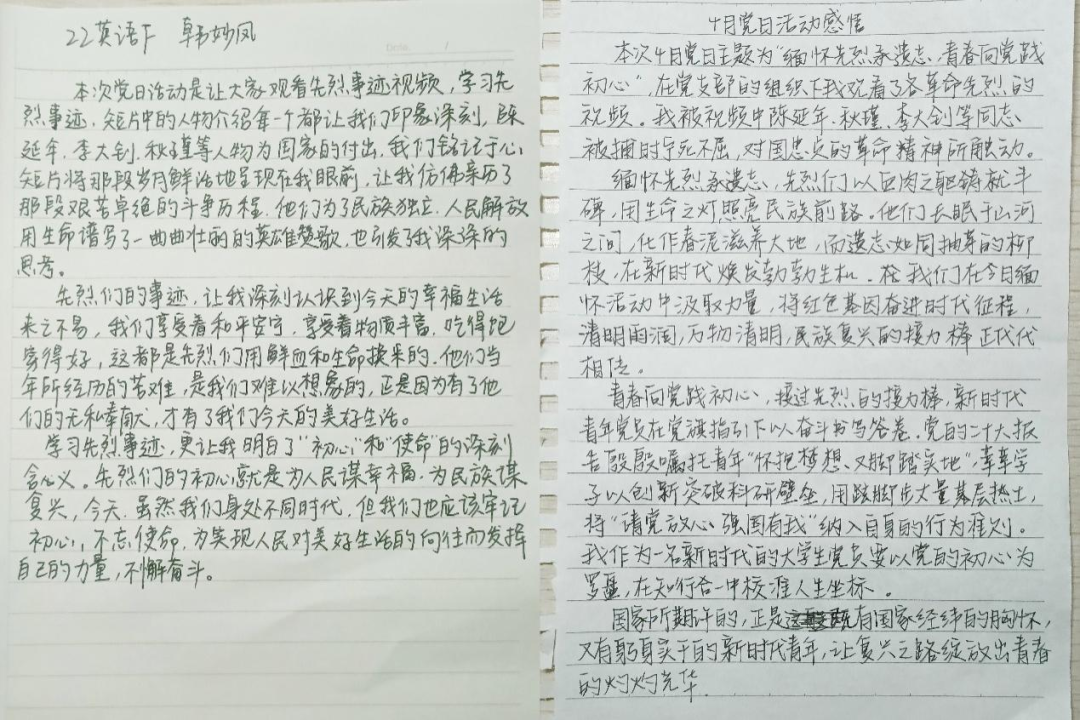 22英语F 韩妙凤
本次党日活动是让大家观看先烈事迹视频，学习先
烈事迹，短片中的人物介绍每一个都让我们印象深刻，陈
延年，李大钊，秋瑾等人物为国家的付出，我们铭记于心，
短片将那段岁月鲜活地呈现在我眼前，让我仿佛亲历了
那段艰苦卓绝的斗争历程，他们为了民族独立，人民解放
用生命谱写了一曲曲壮丽的英雄赞歌，也引发了我深深的
思考。
先烈们的事迹，让我深刻认识到今天的幸福生活
来之不易，我们享受着和平安宁，享受着物质丰富，吃得饱
穿得好，这都是先烈们用鲜血和生命换来的，他们当
年所经历的苦难，是我们难以想象的，正是因为有了他
们的无私奉献，才有了我们今天的美好生活。
学习先烈事迹，更让我明白了"初心"和"使命"的深刻
含义。先烈们的初心就是为人民谋幸福，为民族谋
复兴，今天，虽然我们身处不同时代，但我们也应该牢记
初心，不忘使命，为实现人民对美好生活的向往而发挥
自己的力量，不懈奋斗。
4月党日活动感悟
本次4月党日主题为"缅怀先烈承遗志，青春向党践
初心"，在党支部的组织下我观看了各革命先烈的
视频。我被视频中陈延年、秋瑾、李大钊等同志
被捆时宁死不屈，对国忠贞的革命精神所触动。
缅怀先烈承遗志，先烈们以血肉之躯铸就丰
碑，用生命之灯照亮民族前路。他们长眠于山河
之间，化作春泥滋养大地，而遗志如同抽芽的柳
枝，在新时代焕发勃勃生机。我们在今日缅
怀活动中汲取力量，将红色基因奋进时代征程，
清明雨润，万物清明，民族复兴的接力棒正代代
相传。
青春向党践初心，接过先烈的接力棒，新时代
青年党员在党旗指引下以奋斗书写答卷。党的二十大报
告殷殷嘱托青年"怀抱梦想、又脚踏实地"，莘莘学
子以创新突破科研壁垒，用跋脚步丈量基层热土，
将"请党放心，强国有我"纳入自身的行为准则。
我作为一名新时代的大学生党员要以党的初心为
罗盘，在知行合一中校准人生坐标。
国家所期许的，正是有国家经纬的胸怀，
又有躬身实干的新时代青年，让复兴之路绽放出青春
的灼灼光华.